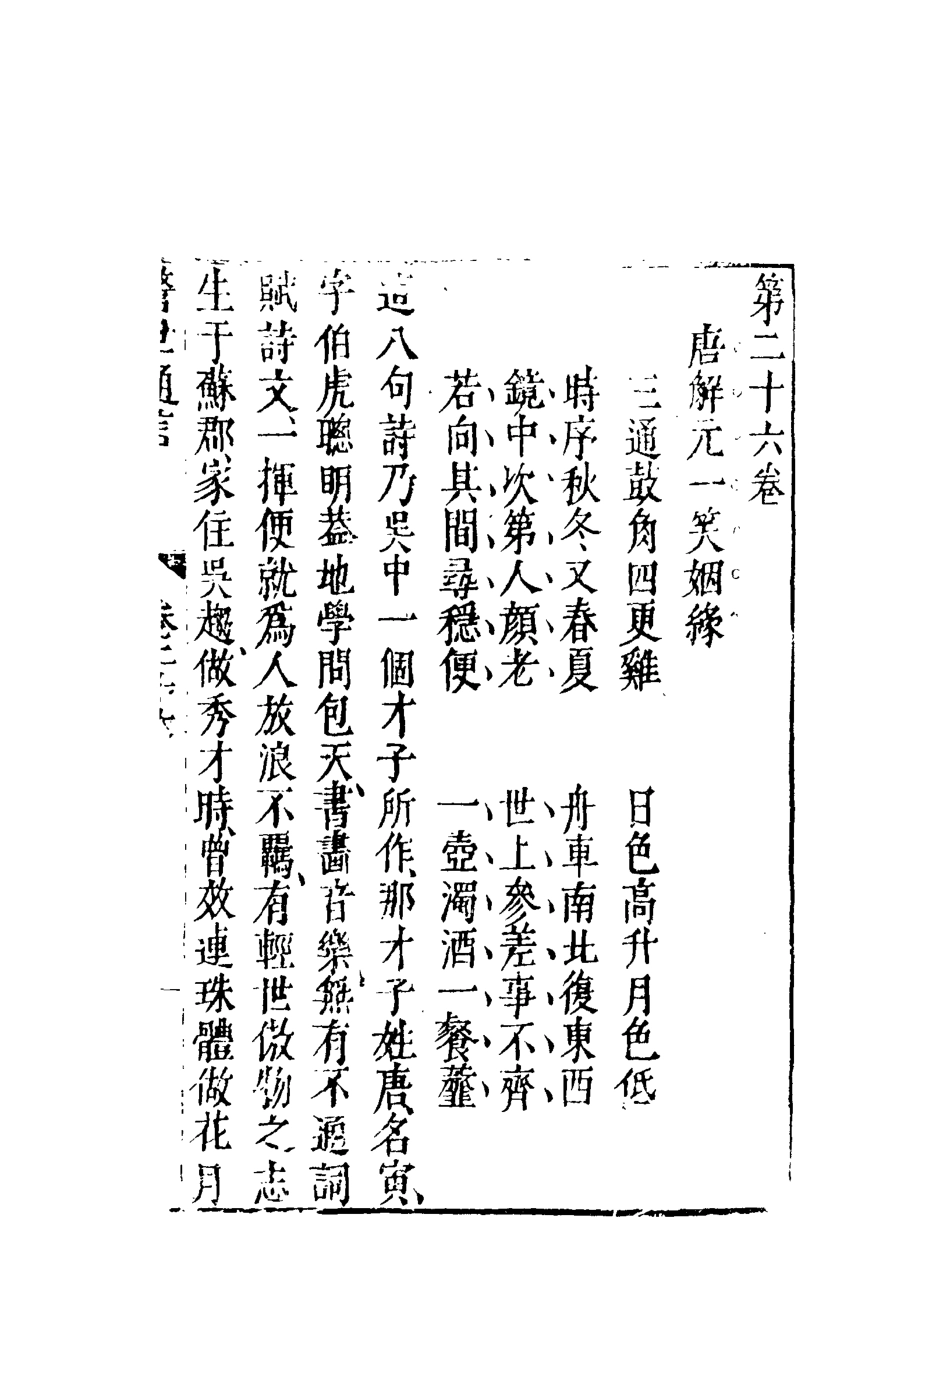 第二十六卷
唐解元一笑姻緣
三通鼓角四更雞　日色高升月色低
時序秋冬又春夏　舟車南北復東西
鏡中次第人顏老　世上參差事不齊
若向其間尋穩便　一壺濁酒一餐虀
這八句詩乃吳中一個才子所作、那才子姓唐名寅、
字伯虎聰明蓋地學問包天、書畫音樂、無有不通詞
賦詩文、一揮便就爲人放浪不羈、有輕世傲物之志
生于蘇郡、家住吳趨、做秀才時、曾效連珠體做花月
警世通言　卷二十六